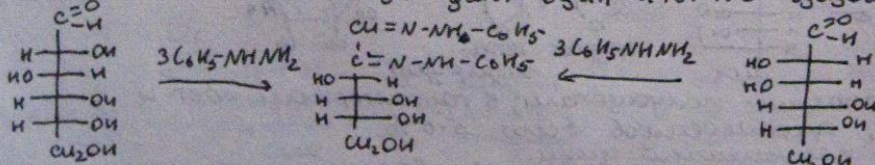 C=O
-H
H OH
HO H
H OH
H OH
CH₂OH
3C₆H₅-NHNH₂
CH=N-NH-C₆H₅
C=N-NH-C₆H₅
HO H
H OH
H OH
CH₂OH
3C₆H₅NHNH₂
C=O
-H
HO H
HO H
H OH
H OH
CH₂OH